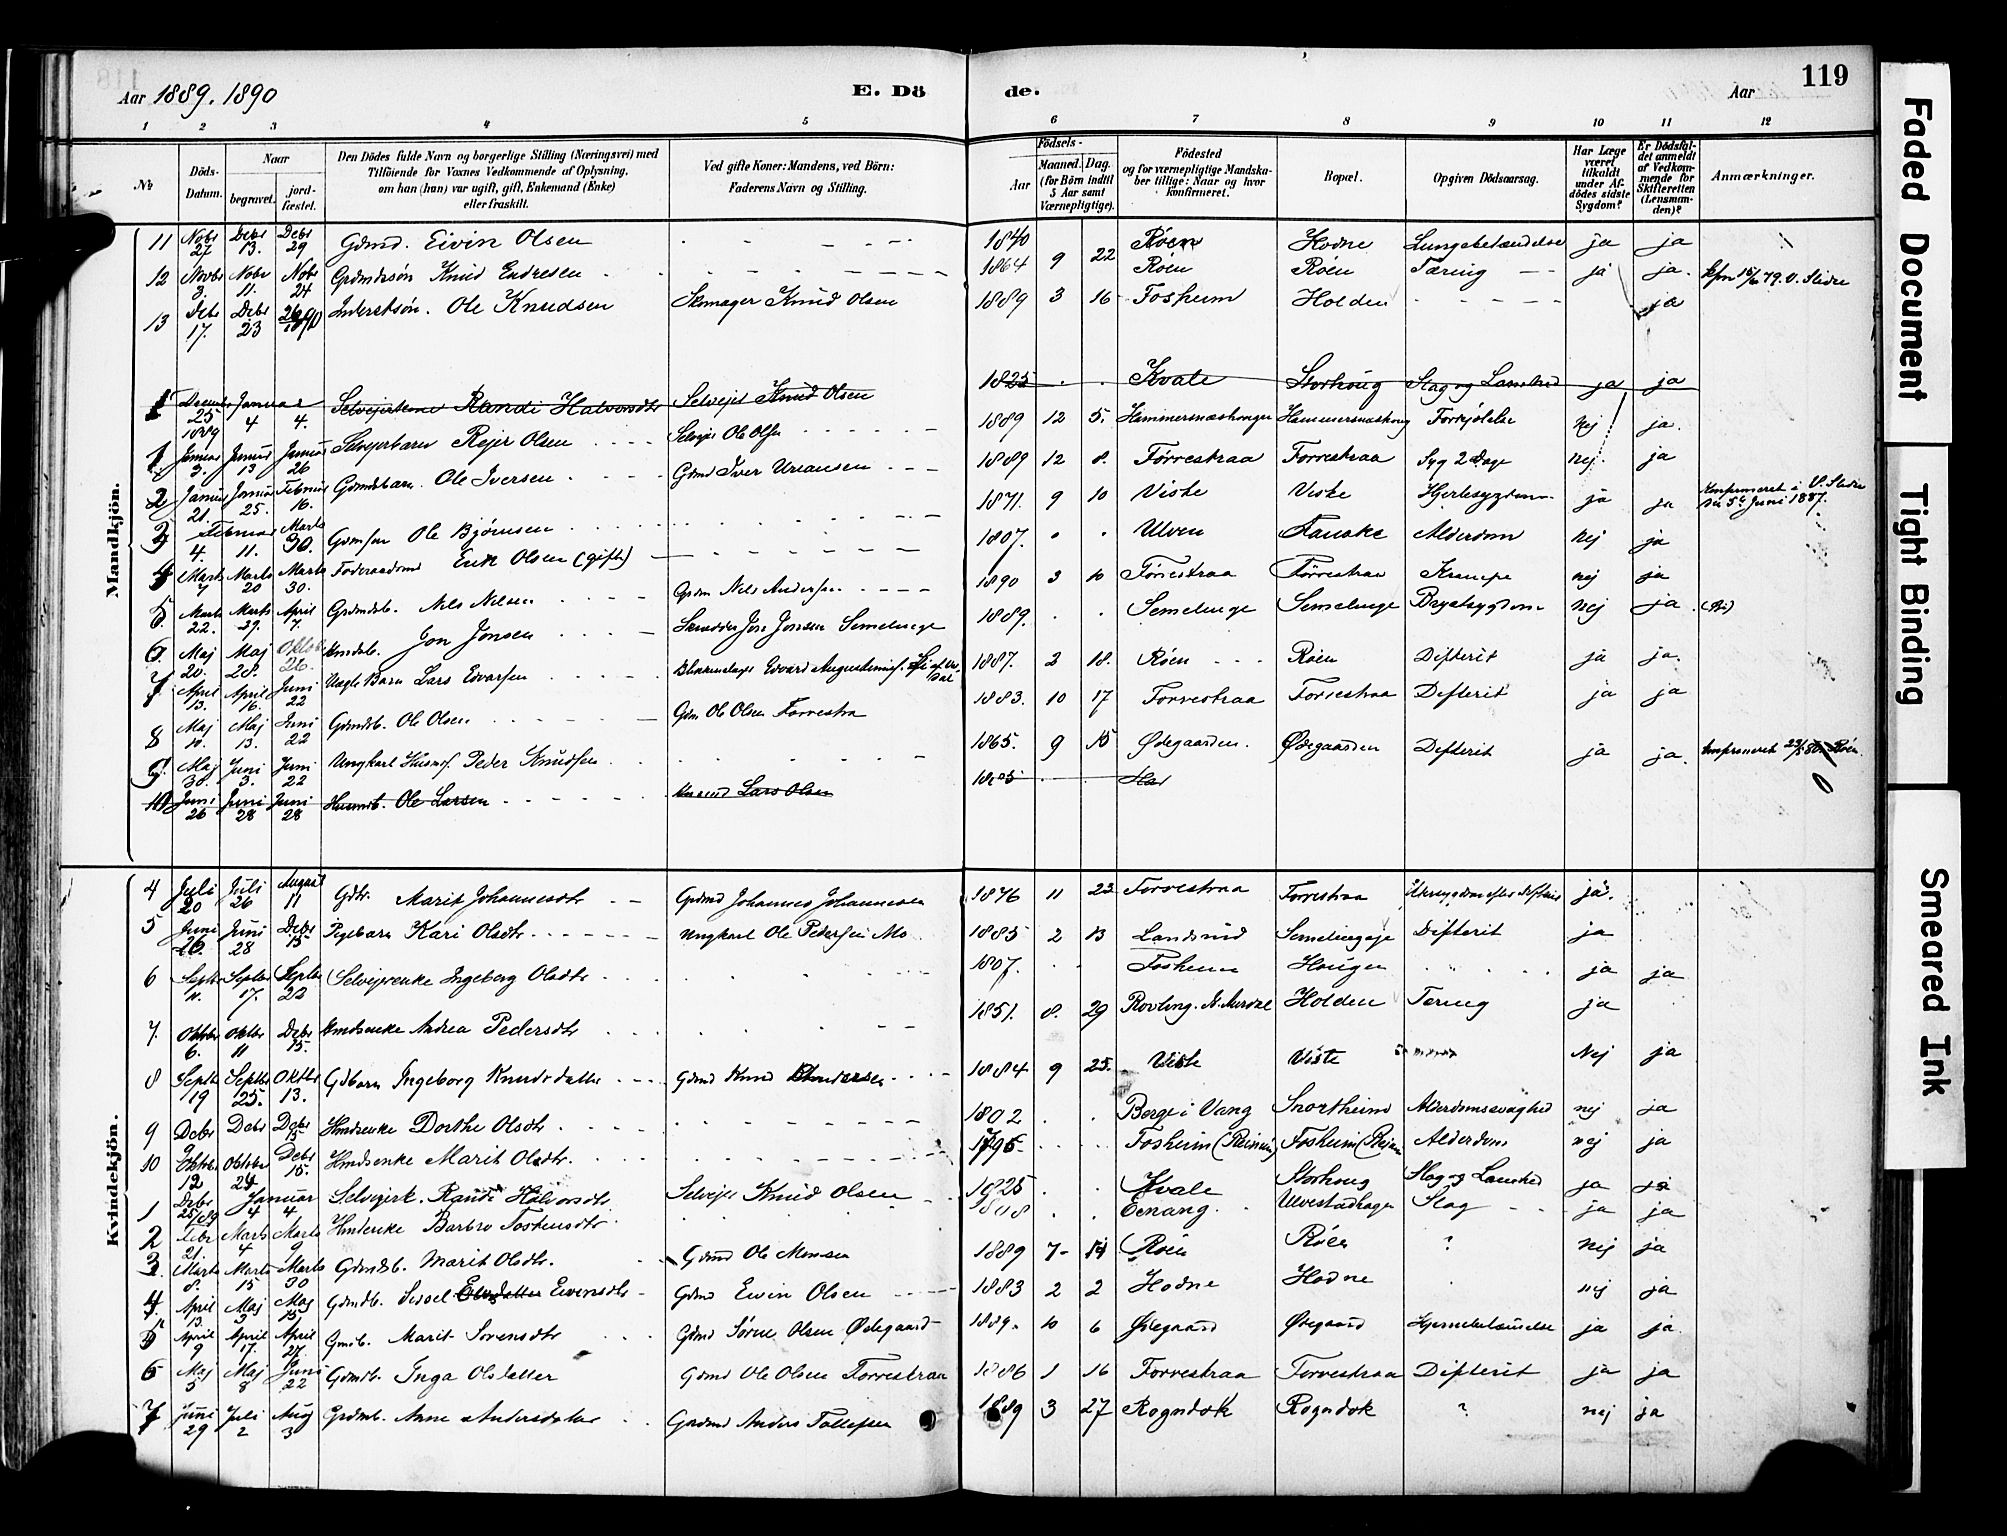 Aar 1889. 1890
E. Dö
de.
Aar
119
1 2 3 4 5 6 7 8 9 10 11 12
No
Döds-Datum.
Naar
begravet.
jord-fæstet.
Den Dödes fulde Navn og borgerlige Stilling (Næringsvei) med Tilföiende for Voxnes Vedkommende af Oplysning, om han (hun) var ugift, gift, Enkemand (Enke) eller fraskilt.
Ved gifte Koner: Mandens, ved Börn: Faderens Navn og Stilling.
Födsels-
Aar
Maaned. Dag.
(for Börn indtil 5 Aar samt Værnepligtige).
Födested og for værnepligtige Mandska-ber tillige: Naar og hvor konfirmeret.
Bopæl.
Opgiven Dödsaarsag.
Har Læge været tilkaldt under Af-dödes sidste Sygdom?
Er Dödsfal-det anmeldt af Vedkom-mende for Skifteretten (Lensman-den)?
Anmærkninger.
Mandkjön.
11 Nobr 27 Debr 13. Debr 29 Gdmd. Eivin Olsen 1840 Røen Hodne Lungebetændelse ja ja
12 Novbr 3. Nobr 11. Nobr 24 Grdmdssøn Knud Endresen 1864 9 22 Røen Røen Tæring ja ja. 79. V. Slidre
13 Debr 17. Debr 23 Inderstsøn. Ole Knudsen Skomager Knud Olsen 1889 3 16 Fosheim Holden ja
1 December 25 1889 Januar 4 4. Randi Halvorsdtr Selvejer Knud Olsen 1825 Kvale Storhoug Slag og Lamhed ja ja
1. Januar 3. Januar 13 Januar 26 Selvejerbarn Rejer Olsen Selvejer Ole Olsen 1889 12 5. Forkjølelse Nej ja.
2 Januar 21. Januar 25. Februar 16. Grdmdsbarn. Ole Iversen Gdmd Iver 1889 12 8. Forrestraa Forrestraa Syg 2 Dage nej. ja
3 Februar 4. 11. Marts 30. Ole Bjørnsen 1871. 9 10 Viste Viste Hjertesygdom ja ja Konfirmeret i V. Slidre Juni 1887.
4 Marts 7 Marts 20 Marts 30. Føderaadsmd Erik Olsen (gift) 1807. Ulven Alderdom nej ja
5 Marts 22. Marts 29. April 7. Grdmdsb. Nils Nilsen Grdm Nils Andersen 1890 3 10 Førrestraa Førrestraa Krampe nej ja
6. Maj 20. Maj 28. Oktob 26. Jon Jonsen Skrædder Jon Jonsen Semelenge 1889. Semelenge Semelenge Brystsygdom nej ja
7. April 13. April 16. Juni 22 Uægte Barn Lars Edvarsen 1887. 2 18. Røen Røen Difterit ja ja.
8 Maj 10. Maj 13. Juni 22 Gdmdsb. Ole Olsen Gdm Ole Olsen Forrestra 1883. 10 17 Forrestraa Forrestraa Difterit ja ja
9. Maj 30. Juni 3. Juni 22 Ungkarl Peder Knudsen 1865. 9 15 Ødegaarden. Ødegaarden Difterit ja ja. Konfirmeret
10 Juni 26 Juni 28 Juni 28 Husmdb. Ole Larsen Lars Olsen
Kvindekjön.
4 Juli 20 Juli 26 August 11 Gdtr. Marit Johannesdtr Grdmd Johannes Johannesen 1876 11 23 Forrestraa Forrestraa ja.
5 Juni 26. Juni 28 Debr 15 Pigebarn Kari Olsdtr. Ungkarl Ole Pedersen Mo 1885 2 13 Landsund Difterit ja
6 Septbr 11. Septbr 17. Septbr 22 Selvejerenke Ingeborg Olsdtr 1807. Fosheim Haugen ja ja
7. Oktbr 6. Oktbr 11 Debr 15. Andrea Pedersdtr 1851. 8. 29 N. Aurdal Holden Tæring ja
8 Septbr 19 Septbr 25. Oktbr 13. Gdbarn Ingeborg Knudsdatter Gdmd Knud 1884 9 25. Viste Viste Nej ja
9 Debr Debr Debr 15 Hmdsenke Dorthe Olsdtr. 1802 Berge i Vang Snortheim Alderdomssvaghed nej ja
10 Oktbr. 12 Oktbr 24 Debr 15. Hmdsenke Marit Olsdtr. 1795 Fosheim Fosheim Alderdom nej ja
1 Debr 25/89 Januar 4 4 Selvejerk. Randi Halvorsdtr. Selvejer Knud Olsen 1825 Kvale Storhoug Slag og Lamhed ja ja
2 Febr 21. Marts 4 Marts 9 Barbro Tostensdtr. Eenang. Slag ja ja
3. Marts 8. Marts 15 Marts 30 Gdmdsb. Marit Olsdtr. Gdmd Ole Monsen 1889 7 14 Røen Røen ? nej ja
4. April 13. Maj 3 Maj Gdmdb. Sissel Eivensdtr Gdmd Eivin Olsen 1883 2 2 Hodne Hodne nej ja
5 April 9 April 17. April 27. Marit Sørensdtr Gdmd Søren Olsen Ødegaard 1889. 10 6 Ødegaard Ødegaard Hjernebetændelse ja ja.
6 Maj 5 Maj 8 Juni 22 Gdmdb. Inga Olsdatter Gdmd Ole Olsen Forrestraa 1886 1 16 Forrestraa Forrestraa Difterit ja ja
7 Juni 29 Juli 2 Aug 3 Grdmb. Anne Andersdatter Gardmd Anders Tollefsen 1889 3 27 Rogndok Rogndok ? nej ja
Faded Document
Tight Binding
Smeared Ink